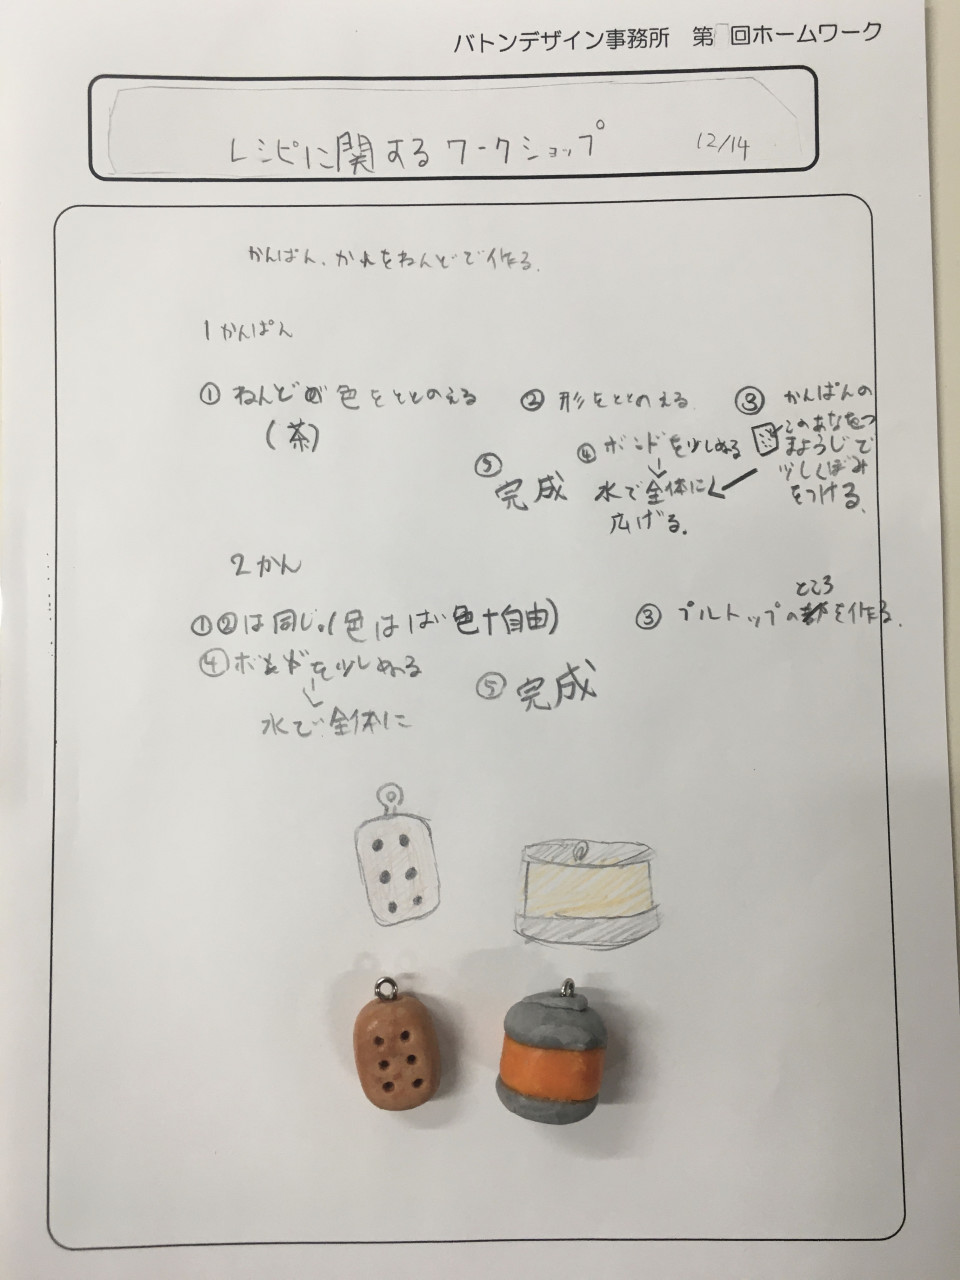 バトンデザイン事務所 第 回ホームワーク
レシピに関するワークショップ 12/14
かんぱん、かんをねんどで作る。
1 かんぱん
① ねんどの色をととのえる
(茶)
② 形をととのえる
③ かんぱんの
このあなをつ
まようじで
少しくぼみ
をつける。
④ ボンドを少しぬる
↓
水で全体に
広げる。
⑤
完成
2 かん
①②は同じ。(色ははい色+自由)
③ プルトップのところを作る。
④ ボンドを少しぬる
↓
水で全体に
⑤ 完成